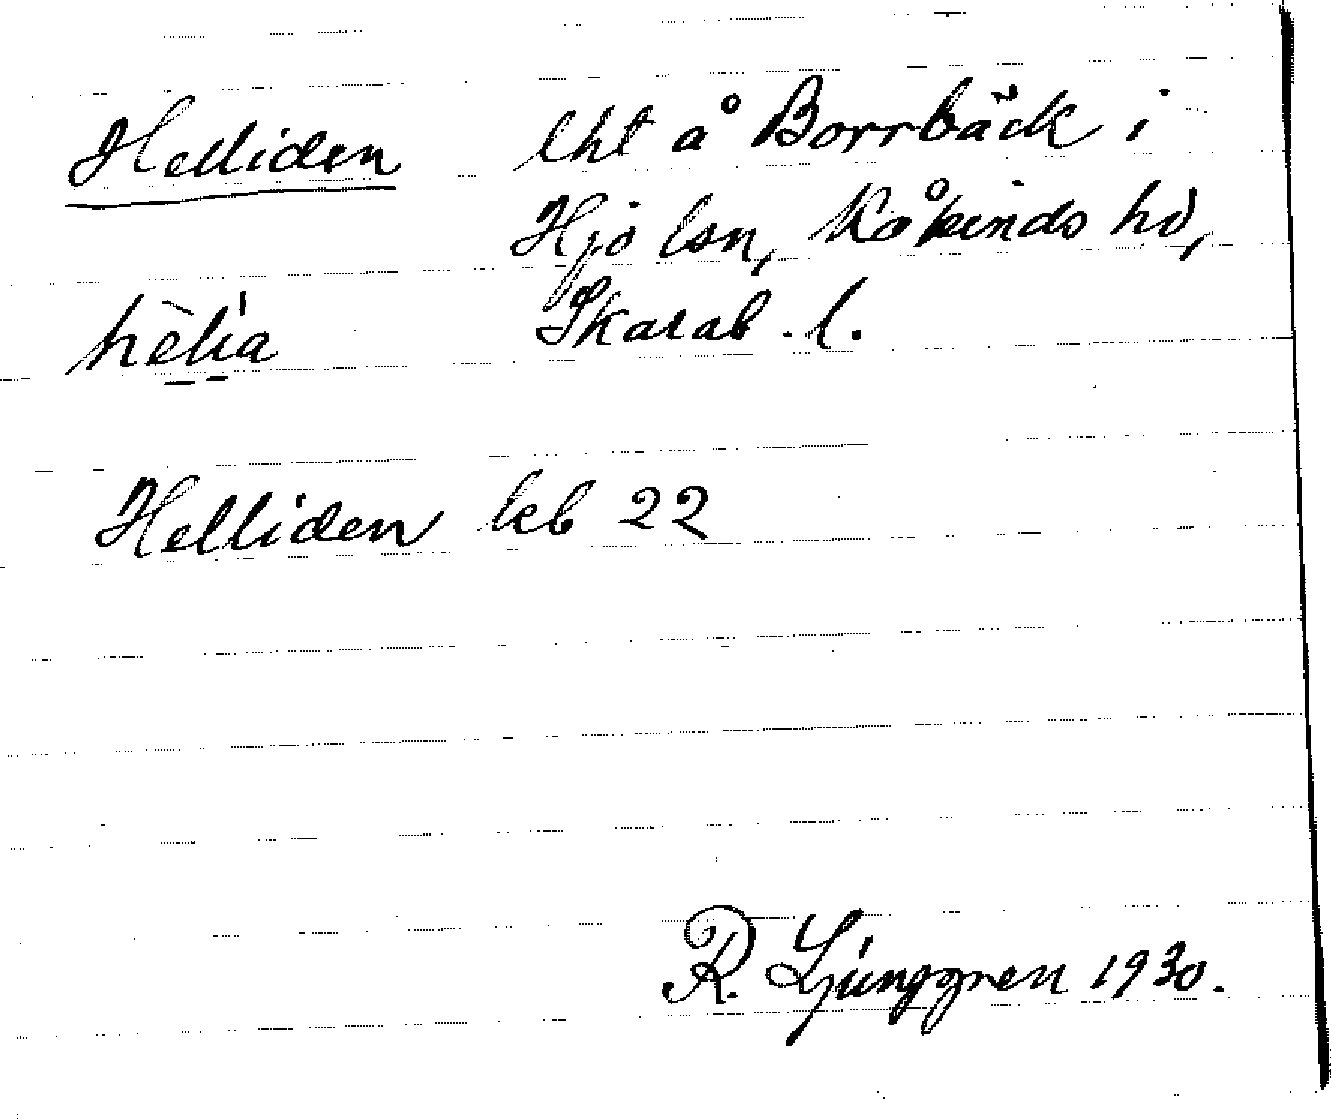 Helliden lht å Borrbäck i
Hjo lsn, Kåkinds hd,
hèlia Skarab. l.
Helliden leb 22
R. Ljunggren 1930.